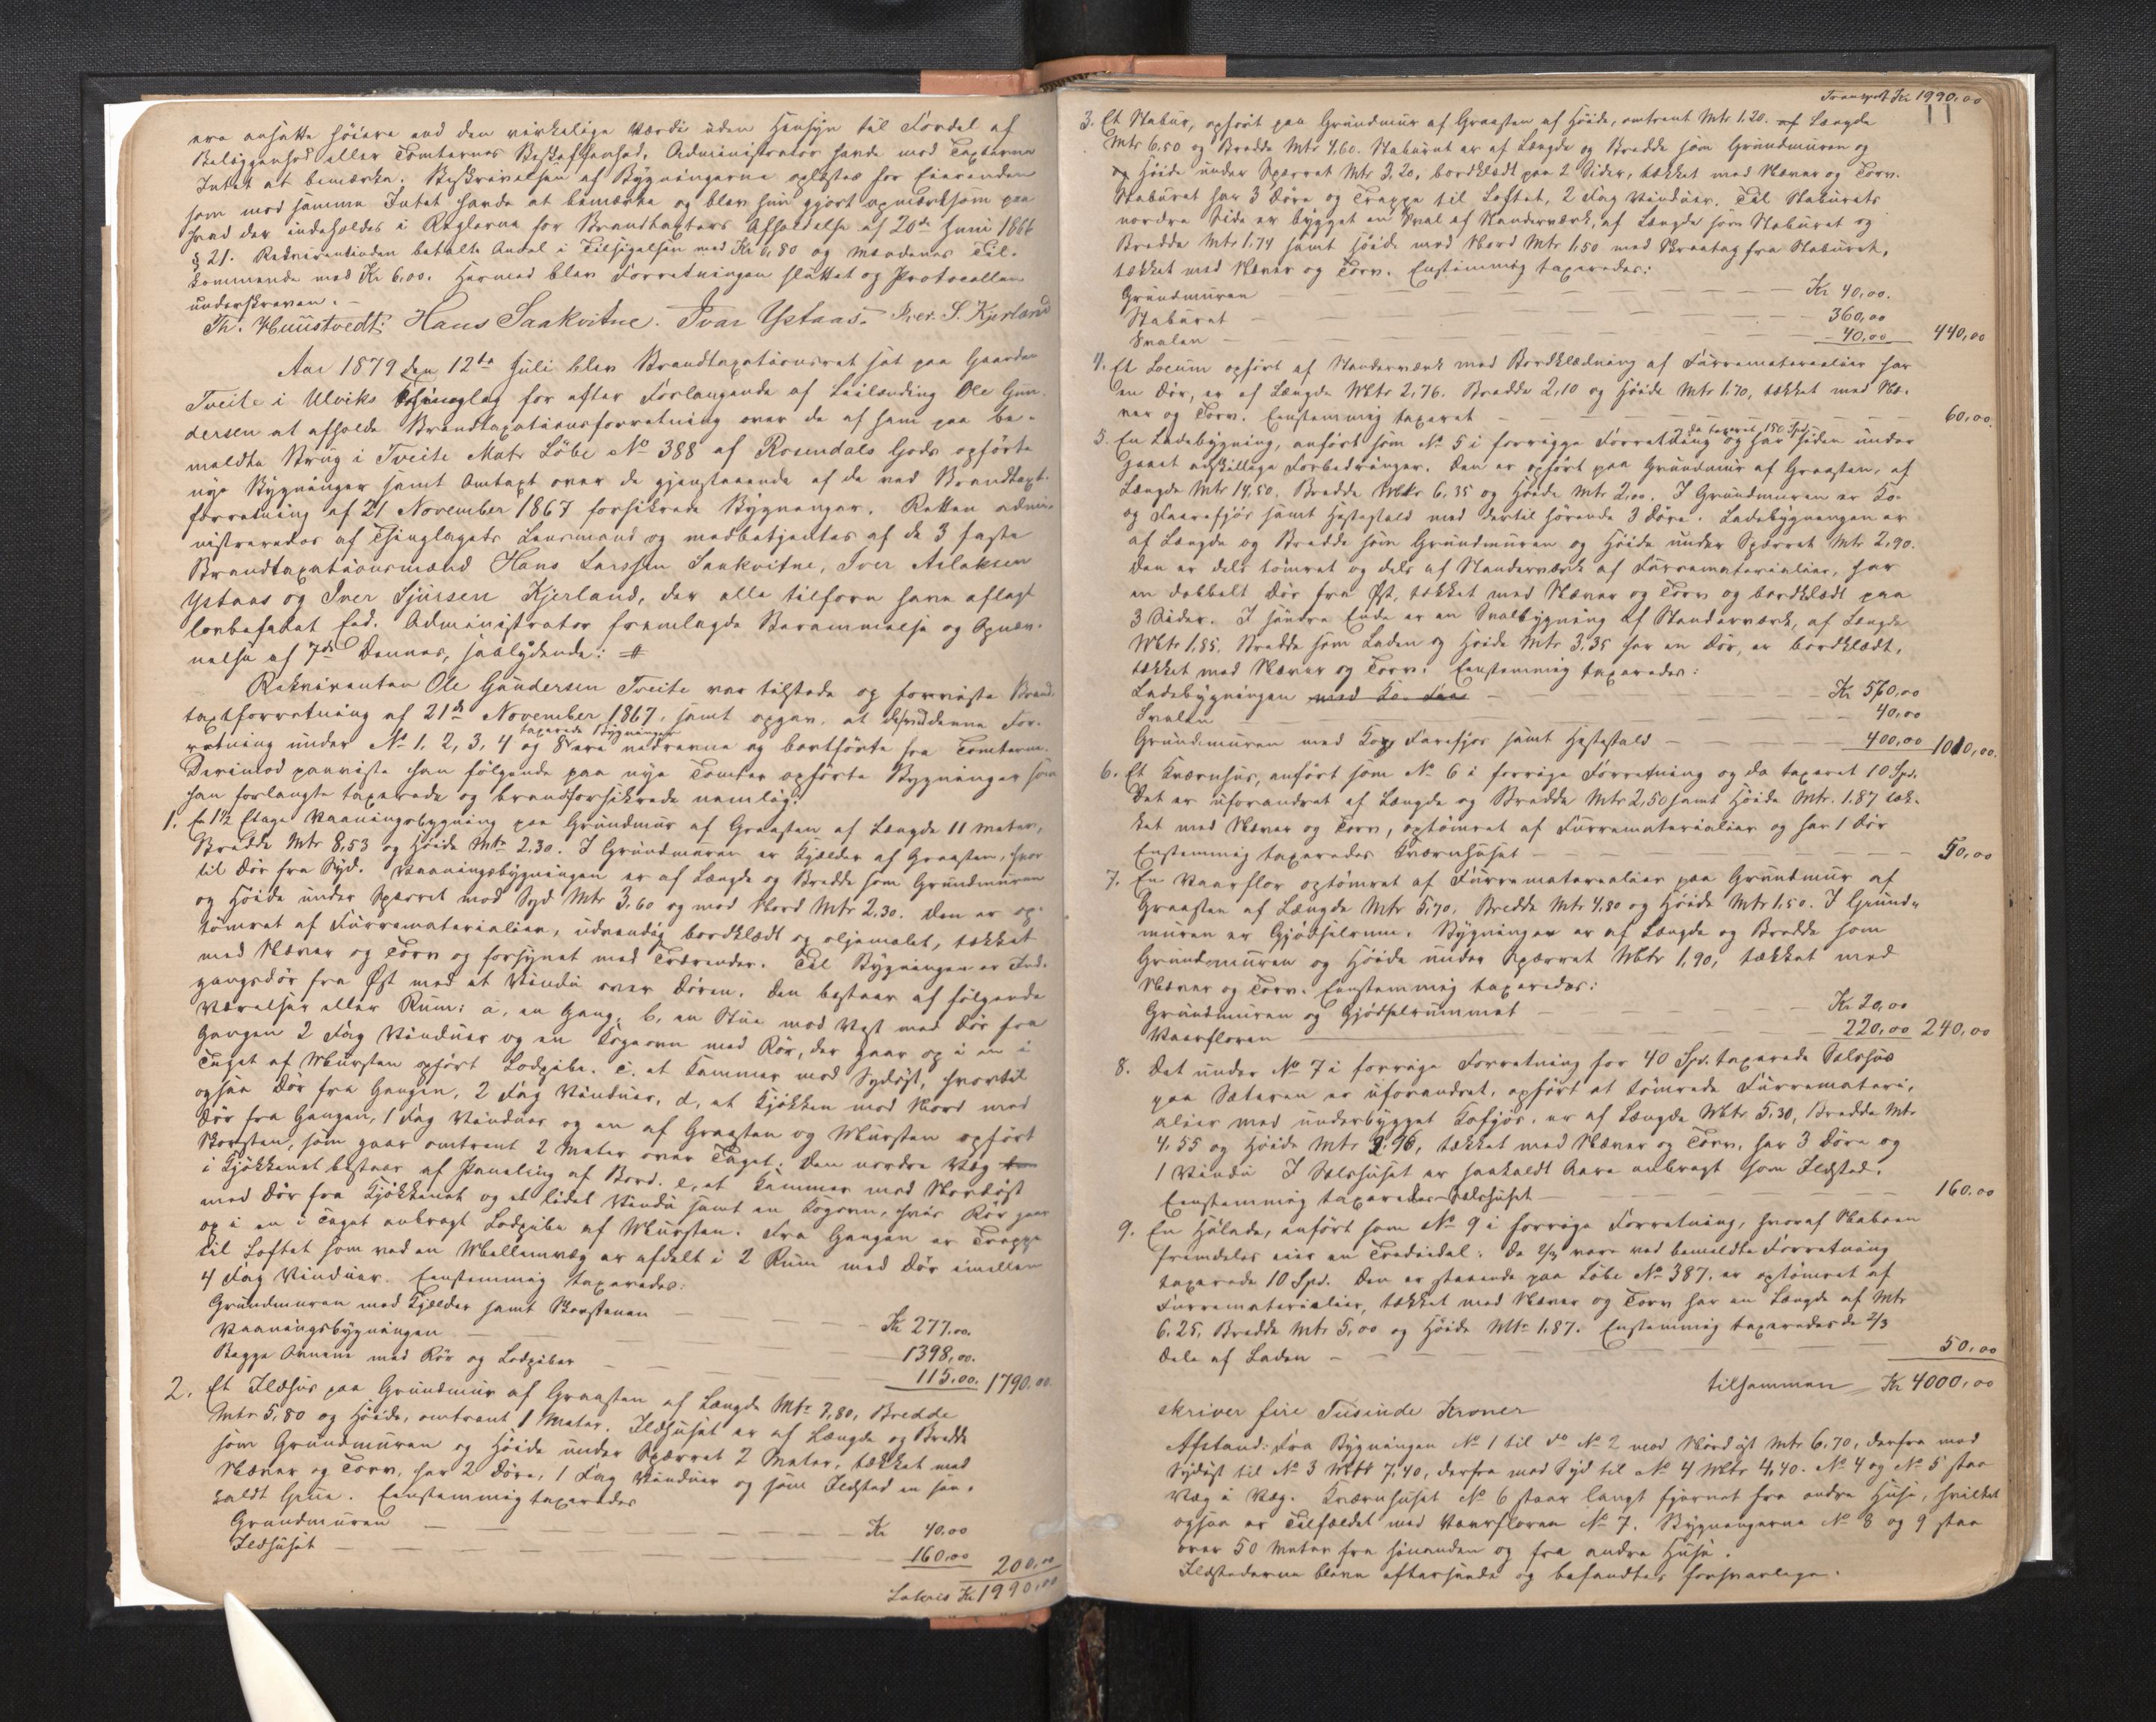 ere ansatte höiere end den virkelige Værdi uden Hensyn til Fordel af
Beliggenhed eller Tomternes Beskaffenhed. Administrator havde mod Taxterne
Intet at bemærke. Beskrivelsen af Bygningerne oplæstes for Eierinden
som mod samme Intet havde at bemærke og blev hun gjort opmærksom paa
hvad der indeholdes i Reglerne for Brandtaxters Afholdelse af 20de Juni 1866
§ 21. Rekvirentinden betalte Andel i Tilsigelsen med Kr 6,80 og Mændenes Til-
kommende med Kr 6,00. Hermed blev Forretningen sluttet og Protocollen
underskreven. –
Th. Huustvedt. Hans Saakvitne. Ivar Ystaas. Iver. S. Kjerland
Aar 1879 den 12te Juli blev Brandtaxationsret sat paa Gaarden
Tveite i Ulviks Thinglag for efter Forlangende af Leilending Ole Gun-
dersen at afholde Brandtaxationsforretning over de af ham paa be-
meldte Brug i Tveite Matr Löbe No 388 af Rosendals Gods opförte
nye Bygninger samt Omtaxt over de gjenstaaende af de ved Brandtaxt-
forretning af 21 November 1867 forsikrede Bygninger. Retten admi-
nistreredes af Thinglagets Lensmand og medbetjentes af de 3 faste
Brandtaxationsmænd Hans Larssen Saakvitne, Iver Aslaksen
Ystaas og Iver Sjursen Kjerland, der alle tilforn have aflagt
lovbefalet Ed. Administrator fremlagde Berammelse og Opnæv-
nelse af 7de Dennes, saalydende: #
Rekvirenten Ole Gundersen Tveite var tilstede og foreviste Brand
taxtforretning af 21de November 1867, samt opgav, at de ved denne For-
taxerede Bygninger
retning under No 1, 2, 3, 4 og 8 ere nedrevne og bortförte fra Tomterne.
Derimod paaviste han fölgende paa nye Tomter opförte Bygninger som
han forlangte taxerede og brandforsikrede nemlig:
1. En 1½ Etage Vaaningsbygning paa Grundmur af Graasten af Længde 11 Meter,
Bredde Mtr 8,53 og Höide Mtr 2.30. I Grundmuren er Kjælder af Graasten, hvor
til Dör fra Syd. Vaaningsbygningen er af Længde og Bredde som Grundmuren
og Höide under Sperret mod Syd Mtr 3,60 og mod Nord Mtr 2,30. Den er op-
tömret af Furrematerialier, udvendig bordklædt og oljemalet, tækket
med Næver og Torv og forsynet med Trærender. Til Bygningen er Ind-
gangsdör fra Öst med et Vindu over Dören. Den bestaar af fölgende
Værelser eller Rum: a, en Gang, b, en Stue mod Vest med Dör fra
Gangen 2 Fag Vinduer og en Kogeovn med Rör, der gaar op i en i
Taget af Mursten opfört Lodpibe. c. et Kammer mod Sydöst, hvortil
ogsaa Dör fra Gangen, 2 Fag Vinduer, d, et Kjökken mod Nord med
Dör fra Gangen, 1 Fag Vinduer og en af Graasten og Mursten opfört
Skorsten, som gaar omtrent 2 Meter over Taget. Den nordre Væg
i Kjökkenet bestaar af Paneling af Bord. e, et Kammer mod Nordöst
med Dör fra Kjökkenet og et lidet Vindu samt en Kogovn, hvis Rör gaar
op i en i Taget anbragt Lodpibe af Mursten. Fra Gangen er Trappe
til Loftet som ved en Mellemvæg er afdelt i 2 Rum med Dör imellem
4 Fag Vinduer. Eenstemmig taxeredes:
Grundmuren med Kjælder samt Skorstenen – Kr 277,00.
Vaaningsbygningen – 1398,00.
Begge Ovnene med Rör og Lodpiber – 115,00. 1790.00.
2. Et Ildhus paa Grundmur af Graasten af Længde Mtr 7,80, Bredde
Mtr 5,80 og Höide, omtrent 1 Meter. Ildhuset er af Længde og Bredde
som Grundmuren og Höide under Sperret 2 Meter, tækket med
Næver og Torv, har 2 Döre, 1 Fag Vinduer og som Ildsted en saa-
kaldt Grue. Eenstemmig taxeredes
Grundmuren – Kr 40,00
Ildhuset – 160,00 200,00
Lateris Kr 1990,00
Transport Kr 1990,00
11
3. Et Stabur, opfört paa Grundmur af Graasten af Höide, omtrent Mtr 1.20. af Længde
Mtr 6,50 og Bredde Mtr 4,60. Staburet er af Længde og Bredde som Grundmuren og
Höide under Sperret Mtr 3,20, bordklædt paa 2 Sider, tækket med Næver og Torv.
Staburet har 3 Döre og Trappe til Loftet, 2 Fag Vinduer. Til Staburets
nordre Side er bygget en Sval af Standerværk, af Længde som Staburet og
Bredde Mtr 1,74 samt Höide mod Nord Mtr 1,50 med Skraatag fra Staburet,
tækket med Næver og Torv. Enstemmig taxeredes:
Grundmuren – Kr 40,00.
Staburet – 360,00
Svalen – 40,00 440,00
4. Et Locum opfört af Standerværk med Bordklædning af Furrematerialier har
en Dör, er af Længde Mtr 2,76. Bredde 2,10 og Höide Mtr 1.70, tækket med Næ-
ver og Torv. Eenstemmig taxeret – 60,00.
da taxeret 150 Spd.
5. En Ladebygning, anfört som No 5 i forrige Forretning og har siden under
gaaet adskillige Forbedringer. Den er opfört paa Grundmur af Graasten, af
Længde Mtr 14,50. Bredde Mtr 6,35 og Höide Mtr 2,00. I Grundmuren er Ko-
og Faarefjös samt Hestestald med dertil hörende 3 Döre. Ladebygningen er
af Længde og Bredde som Grundmuren og Höide under Sperret Mtr 2,90.
Den er dels tömret og dels af Standerværk af Furrematerialier, har
en dobbelt Dör fra Öst, tækket med Næver og Torv og bordklædt paa
3 Sider. I söndre Ende er en Svalbygning af Standerværk, af Længde
Mtr 1,85. Bredde som Laden og Höide Mtr 3,35 har en Dör, er bordklædt,
tækket med Næver og Torv. Eenstemmig taxeredes:
Ladebygningen med Ko- – Kr 570,00
Svalen – 40,00
Grundmuren med Ko- Farefjös samt Hestestald – 400,00 1010,00.
6. Et Kværnhus, anfört som No 6 i forrige Forretning og da taxeret 10 Spd.
Det er uforandret af Længde og Bredde Mtr 2,50 samt Höide Mtr. 1.87 tæk-
ket med Næver og Torv, optömret af Furrematerialier og har 1 Dör
Enstemmig taxeredes Kværnhuset – 50,00
7. En Vaarflor optömret af Furrematerialier paa Grundmur af
Graasten af Længde Mtr 5,70, Bredde Mtr 4,80 og Höide Mtr 1,50. I Grund-
muren er Gjödselrum. Bygningen er af Længde og Bredde som
Grundmuren og Höide under Sperret Mtr 1,90, tækket med
Næver og Torv. Eenstemmig taxeredes:
Grundmuren og Gjödselrummet – Kr 20,00
Vaarfloren – 220,00 240,00
8. Det under No 7 i forrige Forretning for 40 Spd. taxerede Selshus
paa Sæteren er uforandret, opfört at tömrede Furremateri-
alier med underbygget Kofjös, er af Længde Mtr 5,30, Bredde Mtr
4,55 og Höide Mtr 2.96, tækket med Næver og Torv, har 3 Döre og
1 Vindu I Selshuset er saakaldt Aare anbragt som Ildsted.
Eenstemmig taxeredes Selshuset – 160.00
9. En Hölade, anfört som No 9 i forrige Forretning, hvoraf Naboen
fremdeles eier en Trediedel: da 2/3 vare ved bemeldte Forretning
taxerede 10 Spd. Den er staaende paa Löbe No 387, er optömret af
Furrematerialier, tækket med Næver og Torv har en Længde af Mtr
6.25, Bredde Mtr 5,00 og Höide Mtr 1.87. Enstemmig taxeredes de 2/3
Dele af Laden – 50,00
tilsammen Kr 4000,00
skriver fire Tusinde Kroner
Afstand: Fra Bygningen No 1 til do No 2 mod Nordöst Mtr 6,70, derfra mod
Sydöst til No 3 Mtr 7,40, derfra mod Syd til No 4 Mtr 4,40. No 4 og No 5 staa
Væg i Væg. Kværnhuset No 6 staar langt fjernet fra andre Huse, hvilket
ogsaa er Tilfældet med Vaarfloren No 7. Bygningerne No 8 og 9 staa
over 50 Meter fra hinanden og fra andre Huse.
Ildstederne bleve efterseede og befandtes forsvarlige.